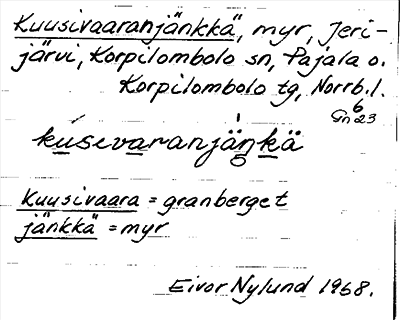 Kuusivaaranjänkkä, myr, Jeri-
järvi, Korpilombolo sn, Pajala o.
Korpilombolo tg, Norrb. l.
6
Gn 23
kusivaranjäŋkä
Kuusivaara = granberget
jänkkä = myr
Eivor Nylund 1968.